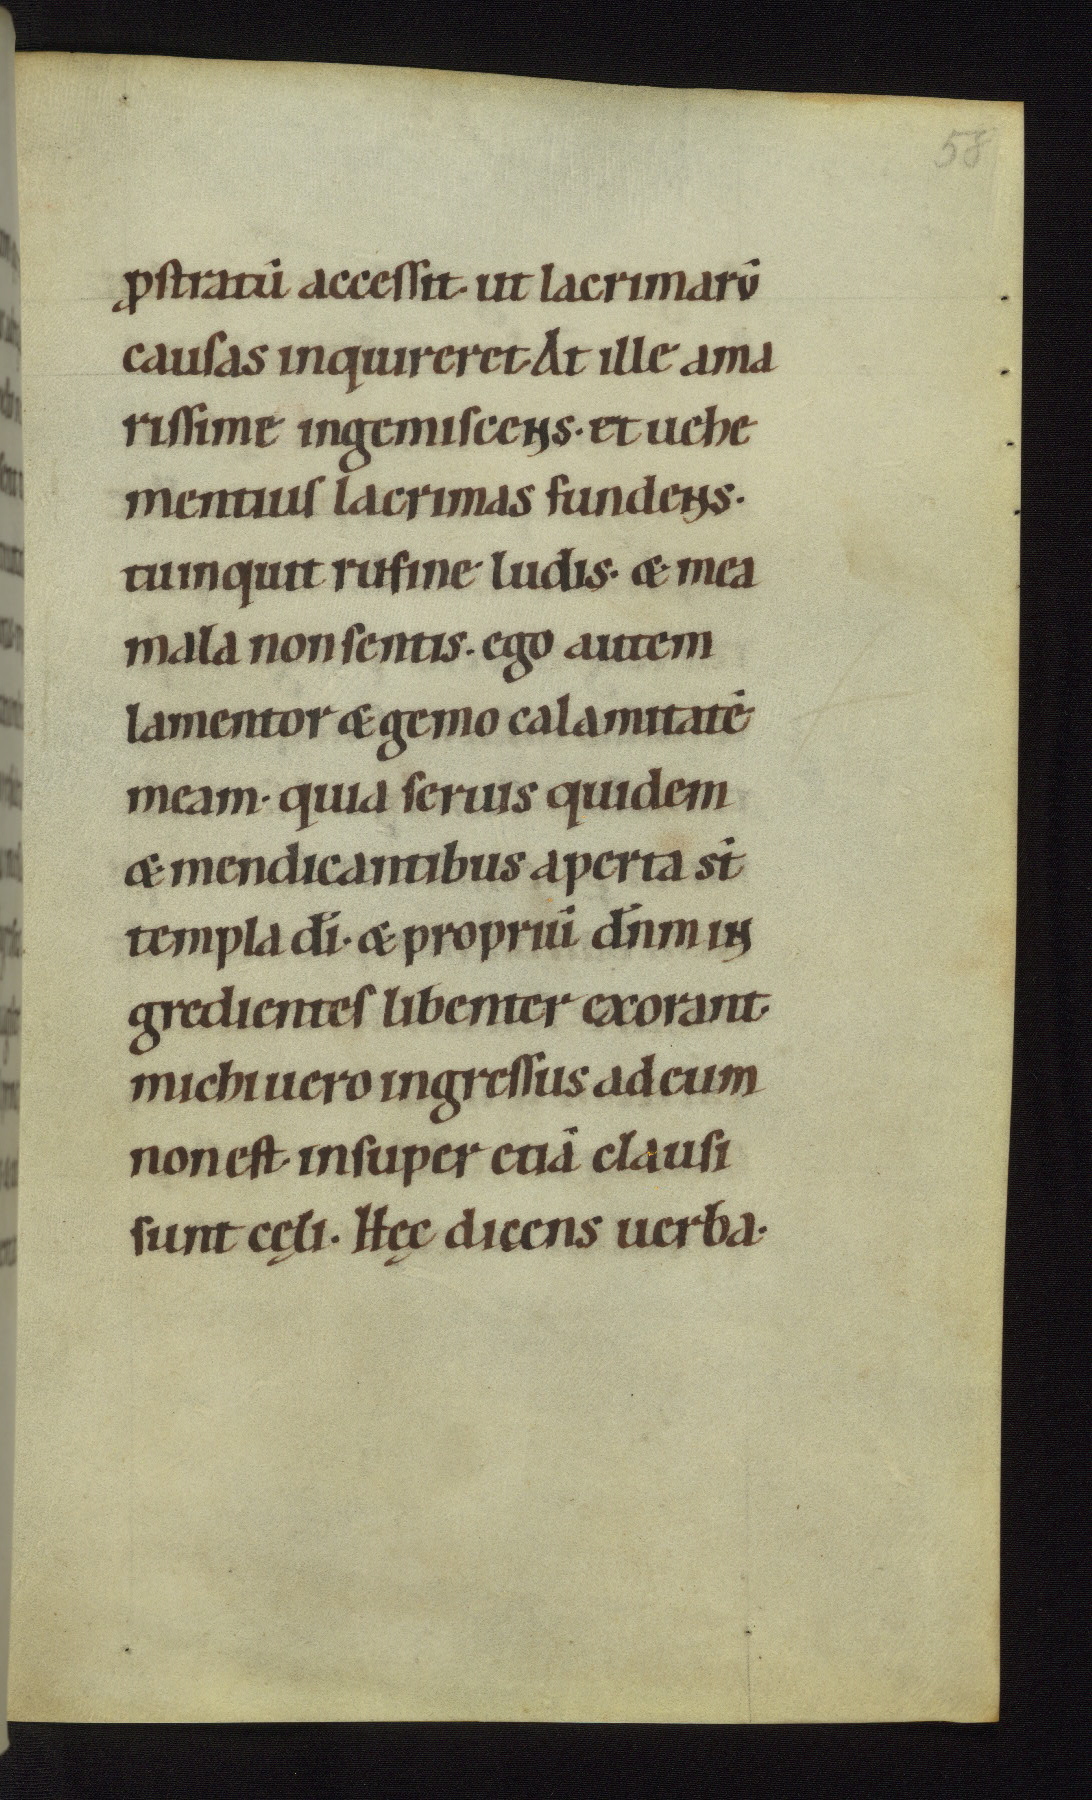 58
ꝓstratū accessit· ut lacrimarū
causas inquireret· At ille ama
rissime ingemiscens· et uehe
mentius lacrimas fundens·
tu inquit rufine ludis· & mea
mala non sentis· ego autem
lamentor & gemo calamitatē
meam· quia seruis quidem
& mendicantibus aperta st̄
templa dī· & propriū dn̄m in
gredientes libenter exorant·
michi uero ingressus ad eum
non est· insuper etiā clausi
sunt cęli· Hęc dicens uerba·